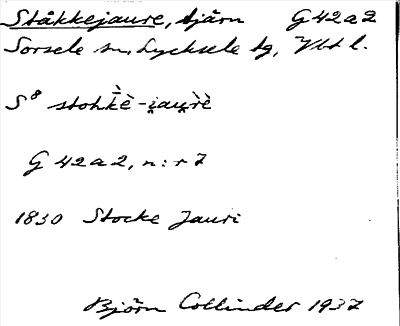 Ståkkejaure, tjärn G 42 a 2
Sorsele sn, Lycksele tg, Vbt l.
S⁸ stohk̀è-i̯au̯r̀è
G 42 a 2, n:r 7
1830 Stocke Jauri
Björn Collinder 1937